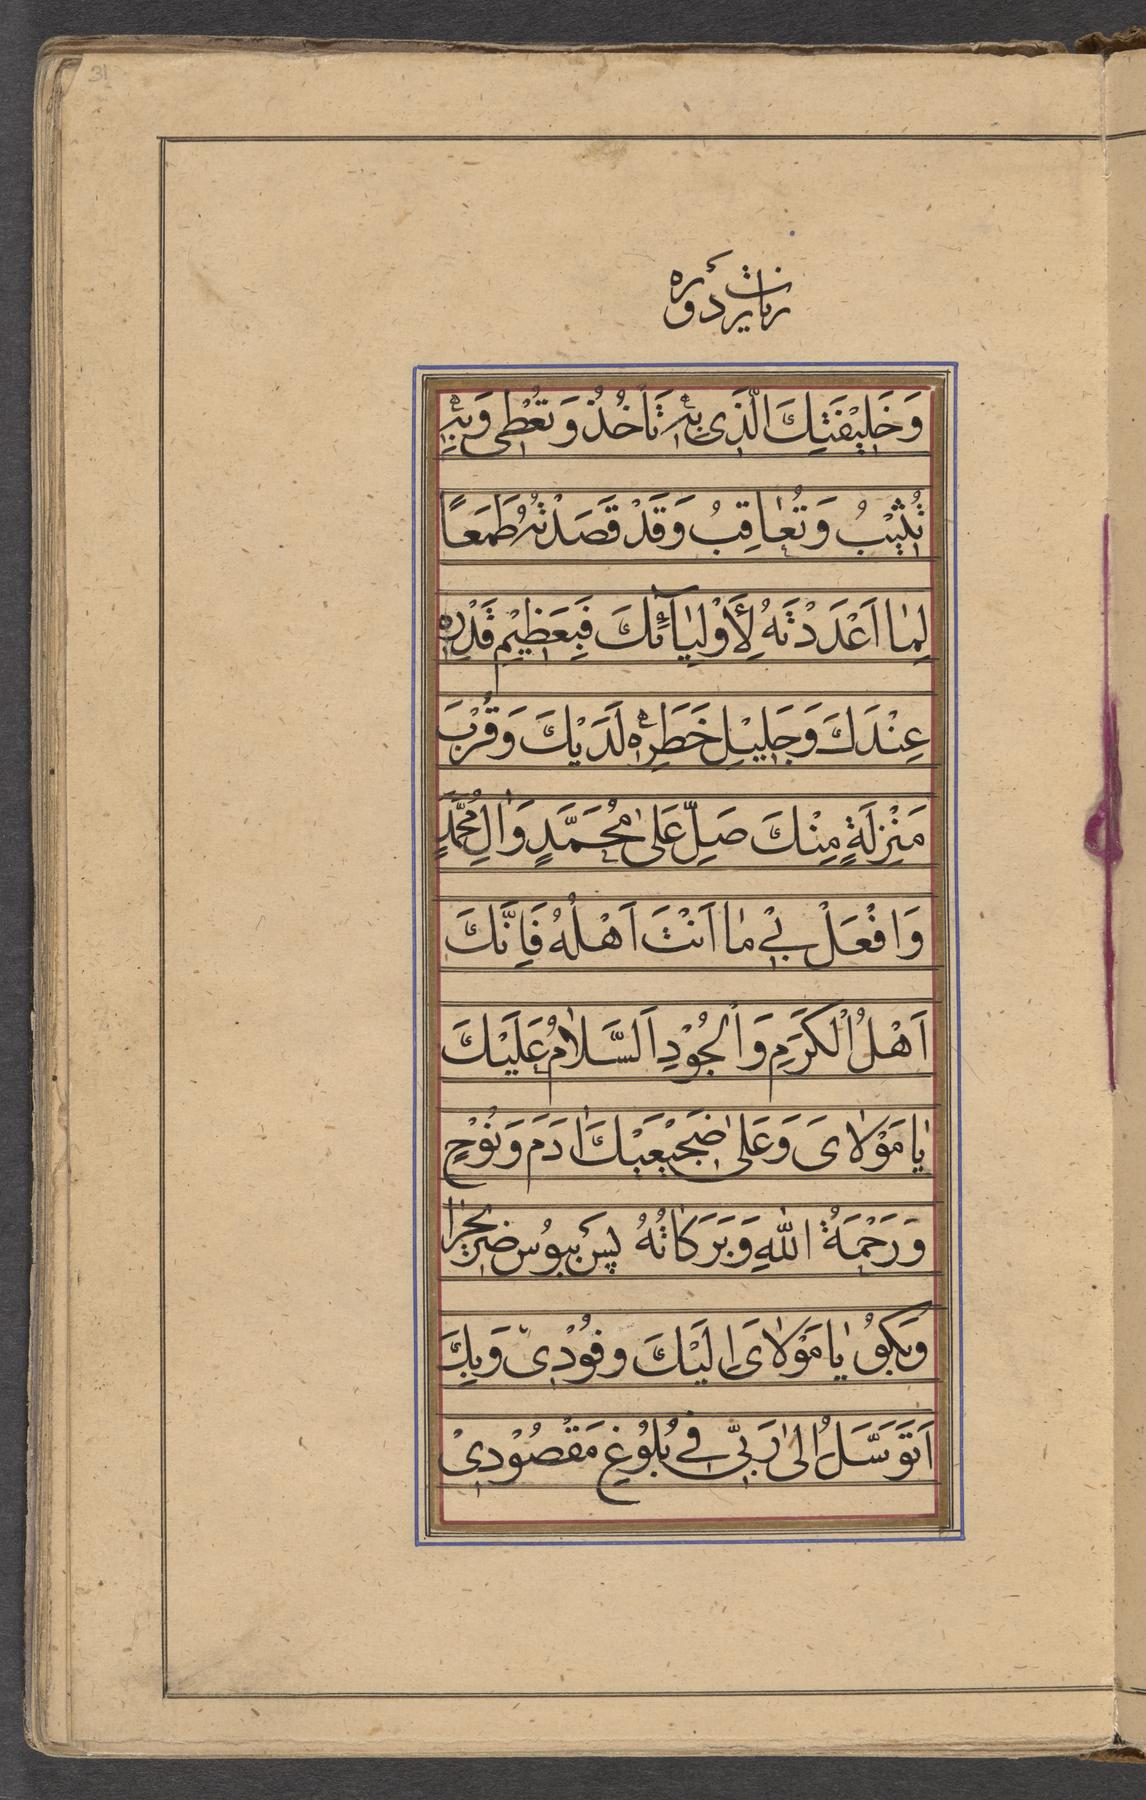 31
زیارت دوره
وَخَلِيْفَتِكَ الَّذِي بِهٖ تَاْخُذُ وَتُعْطِي وَبِهٖ
تُثِيْبُ وَتُعَاقِبُ وَقَدْ قَصَدْتُهُ طَمَعًا
لِمٰا اَعْدَدْتَهُ لِأَوْلِيٰآئِكَ فَبِعَظِيْمِ قَدْرِهٖ
عِنْدَكَ وَجَلِيْلِ خَطَرِهٖ لَدَيْكَ وَقُرْبَ
مَنْزِلَةٍ مِنْكَ صَلِّ عَلىٰ مُحَمَّدٍ وَاٰلِ مُحَمَّدٍ
وَافْعَلْ بِيْ مٰا اَنْتَ اَهْلُهُ فَاِنَّكَ
اَهْلُ الْكَرَمِ وَالْجُوْدِ اَلسَّلٰامُ عَلَيْكَ
يٰا مَوْلٰاىَ وَعَلىٰ ضَجِيْعَيْكَ اٰدَمَ وَنُوْحٍ
وَرَحْمَةُ اللّٰهِ وَبَرَكٰاتُهُ پس ببوس ضریح را
وَبكوُ يٰا مَوْلٰاىَ اِلَيْكَ وفُوْدِىْ وَبِكَ
اَتَوَسَّلُ اِلىٰ رَبّىِ فِى بُلُوْغِ مَقْصُوْدِىْ